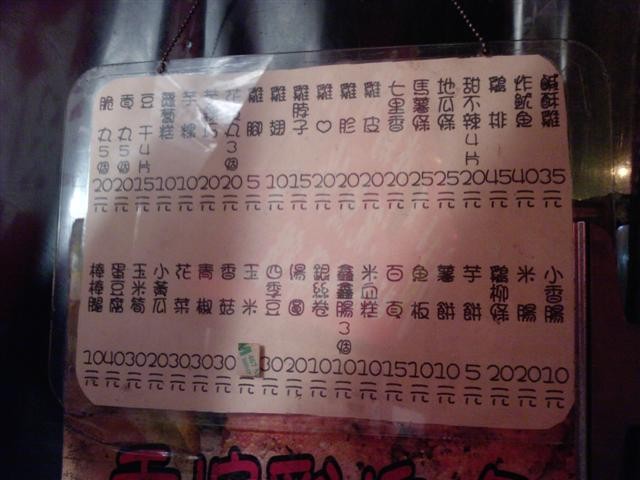 鹹酥雞 35元
炸魷魚 40元
雞排 45元
甜不辣4片 20元
地瓜條 25元
馬薯條 25元
七里香 20元
雞皮 20元
雞肫 20元
雞♡ 20元
雞脖子 15元
雞翅 10元
雞腳 5元
花丸3個 20元
20元
芋粿 10元
蘿蔔糕 10元
豆干4片 15元
貢丸5個 20元
脆丸5個 20元
小香腸 10元
米腸 20元
雞柳條 20元
芋餅 5元
薯餅 10元
魚板 10元
百頁 15元
米血糕 10元
鑫鑫腸3個 10元
銀絲卷 10元
湯圓 20元
四季豆 30元
玉米 元
香菇 30元
青椒 30元
花菜 30元
小黃瓜 20元
玉米筍 30元
蛋豆腐 40元
棒棒腿 10元